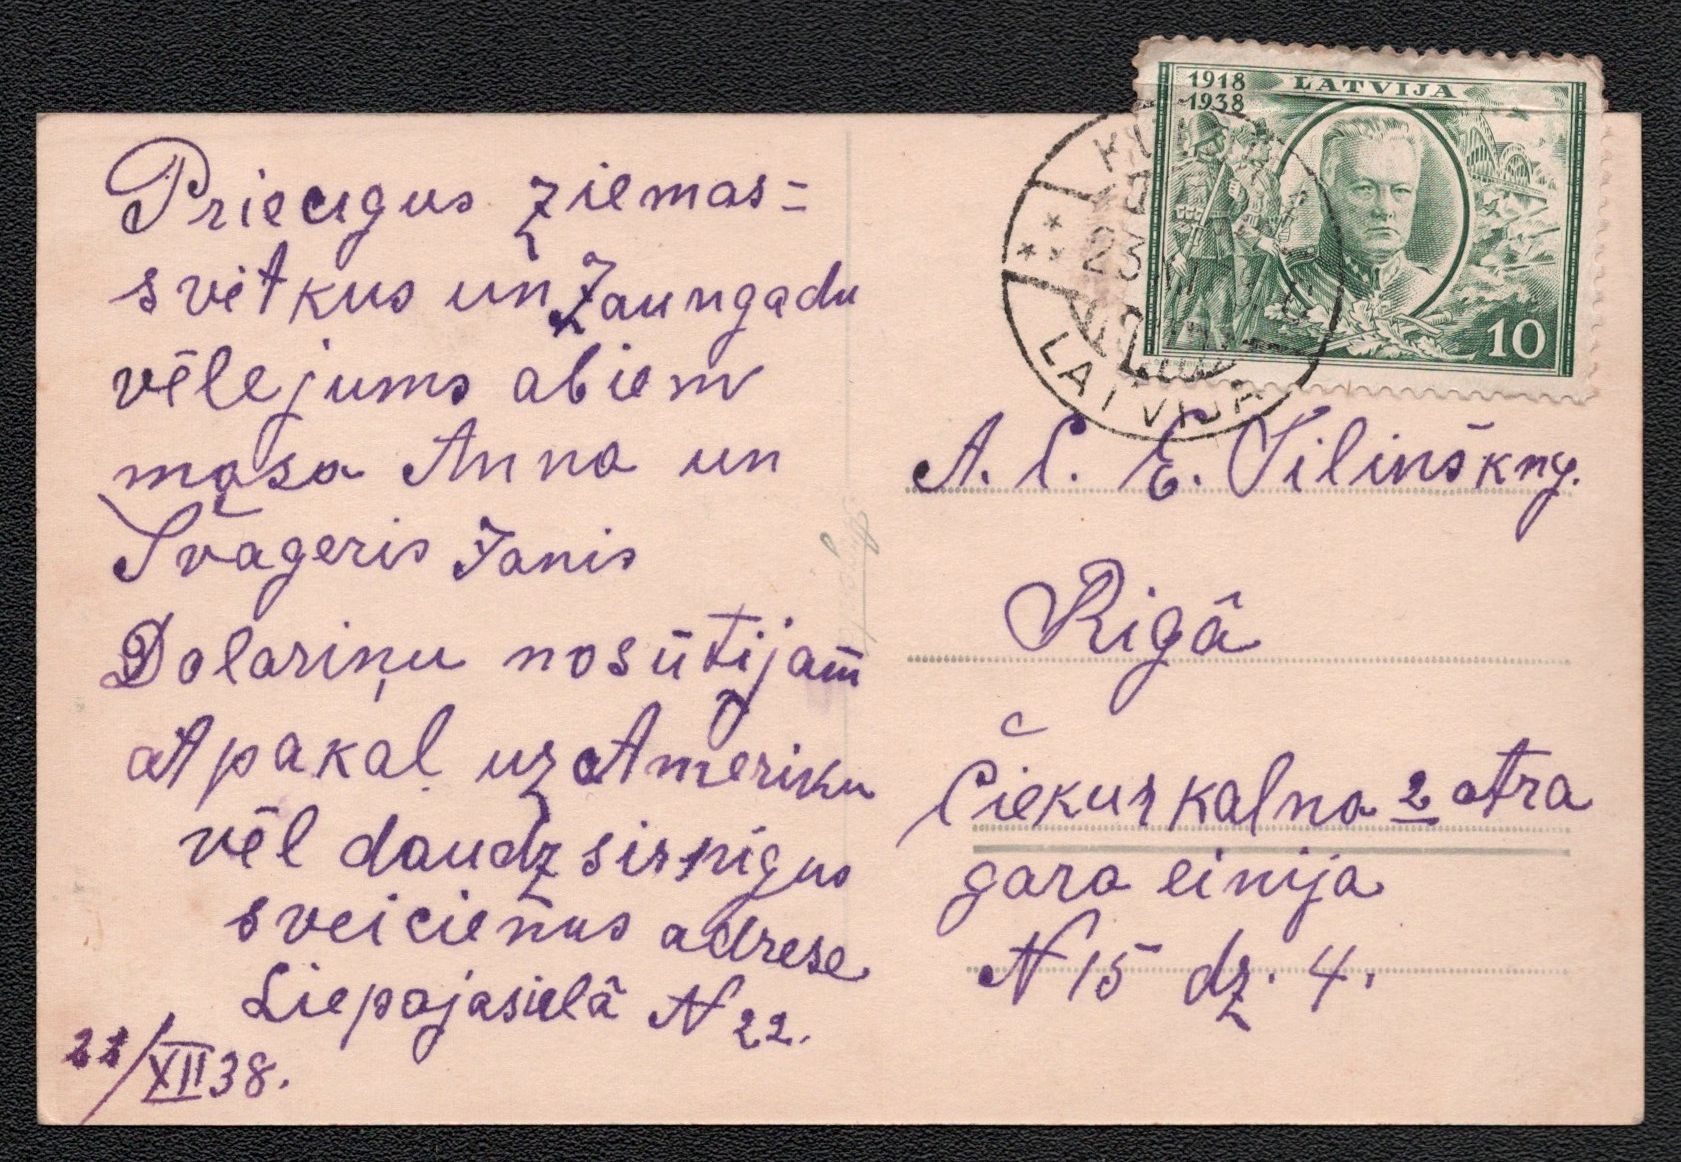 Priecigus ziemas=
svētkus un Jaungadu
vēlejums abiem
māsa Anna un
Švāgeris Janis
Dolariņu nosūtijam
Apakaļ uz Ameriku
vēl daudz sirsnigus
sveicieņus adrese
Liepajasielā N 22.
22/XII 38.
1918 LATVIJA
1938
10
23 XII
LATVIJA
A. C. E. Siliņškny.
Rigâ
Čiekurkalna 2 Atra
gara einija
N 15 dz. 4.